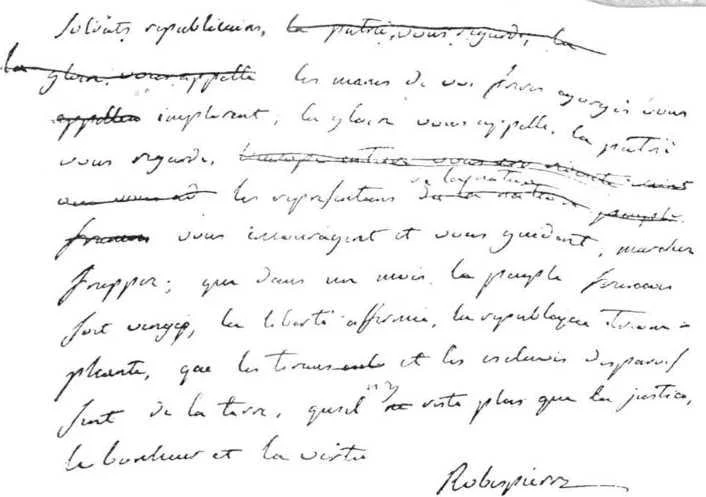 Soldats republicains, la patrie vous regarde, la
la gloire vous appelle les manes de vos freres egorgés vous
appellent implorent, la gloire vous appelle, la patrie
vous regarde,
les representans de la nation
vous encouragent et vous guident, marchez
frappez; que dans un mois le peuple francais
soit vengé, la liberté affermie, la republique triom-
phante, que les tirans et les esclaves disparois
sent de la terre, qu'il n'y reste plus que la justice,
le bonheur et la vertu
Robespierre